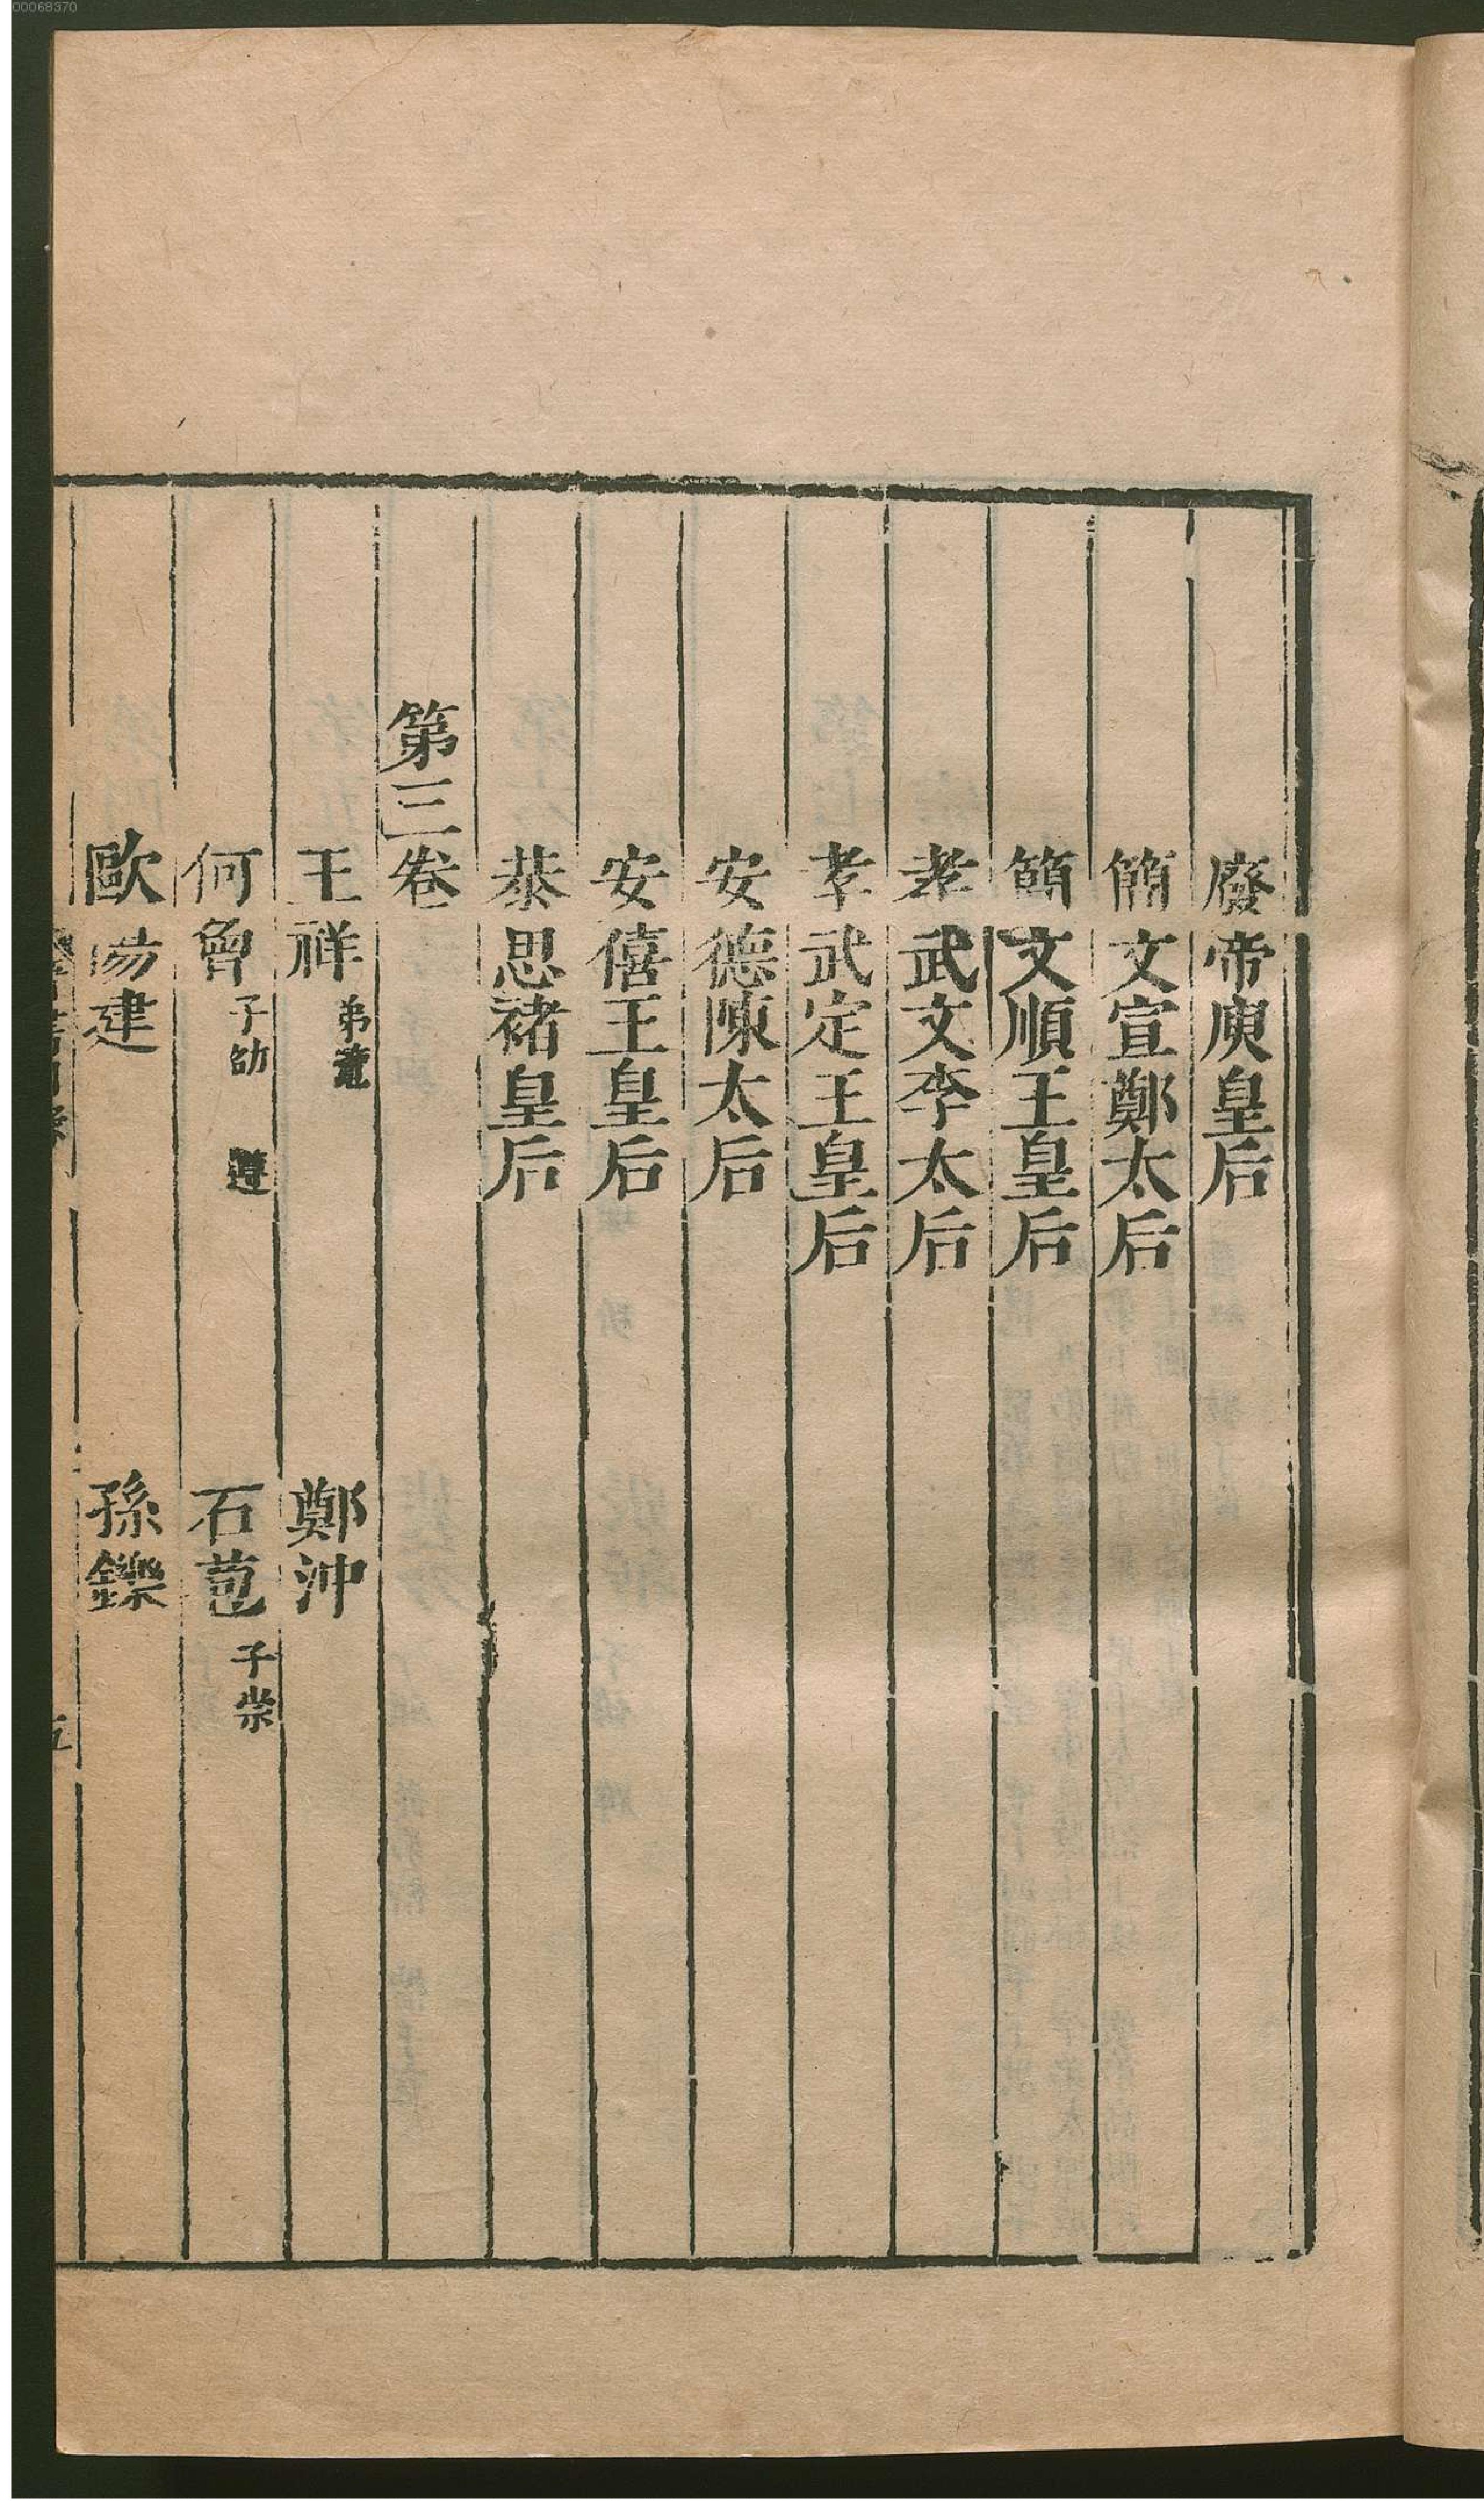 00068370
廢帝庾皇后
簡文宣鄭太后
簡文順王皇后
孝武文李太后
孝武定王皇后
安德陳太后
安僖王皇后
恭思褚皇后
第三卷
王祥 弟覽 鄭沖
何曾 子劭 遵 石苞 子崇
歐陽建 孫鑠
晉書目錄 五